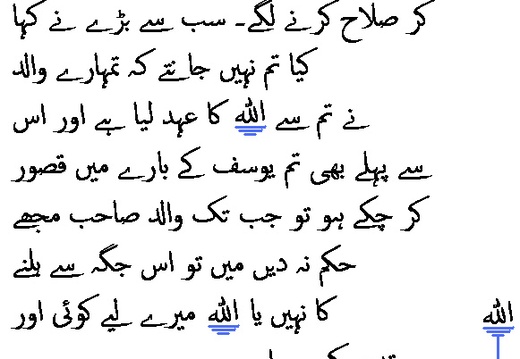 کر صلاح کرنے لگے۔ سب سے بڑے نے کہا
کیا تم نہیں جانتے کہ تمہارے والد
نے تم سے اللہ کا عہد لیا ہے اور اس
سے پہلے بھی تم یوسف کے بارے میں قصور
کر چکے ہو تو جب تک والد صاحب مجھے
حکم نہ دیں میں تو اس جگہ سے ہلنے
کا نہیں یا اللہ میرے لیے کوئی اور
اللہ